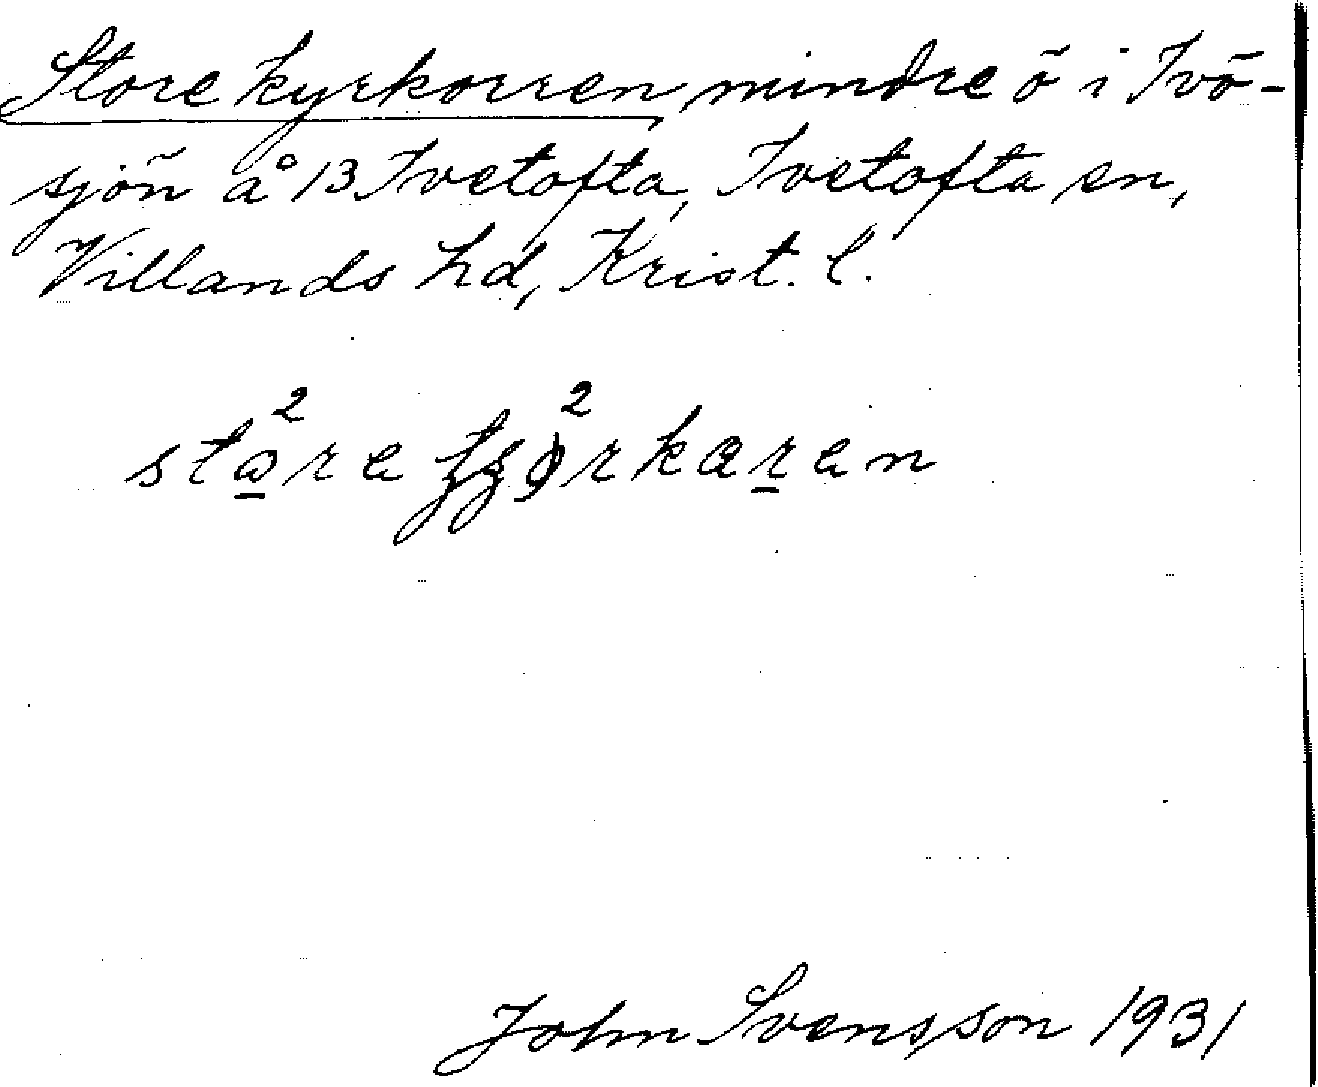 Store kyrkorren, mindre ö i Ivö-
sjön å 13 Ivetofta, Ivetofta sn,
Villands hd, Krist. l.
John Svensson 1931